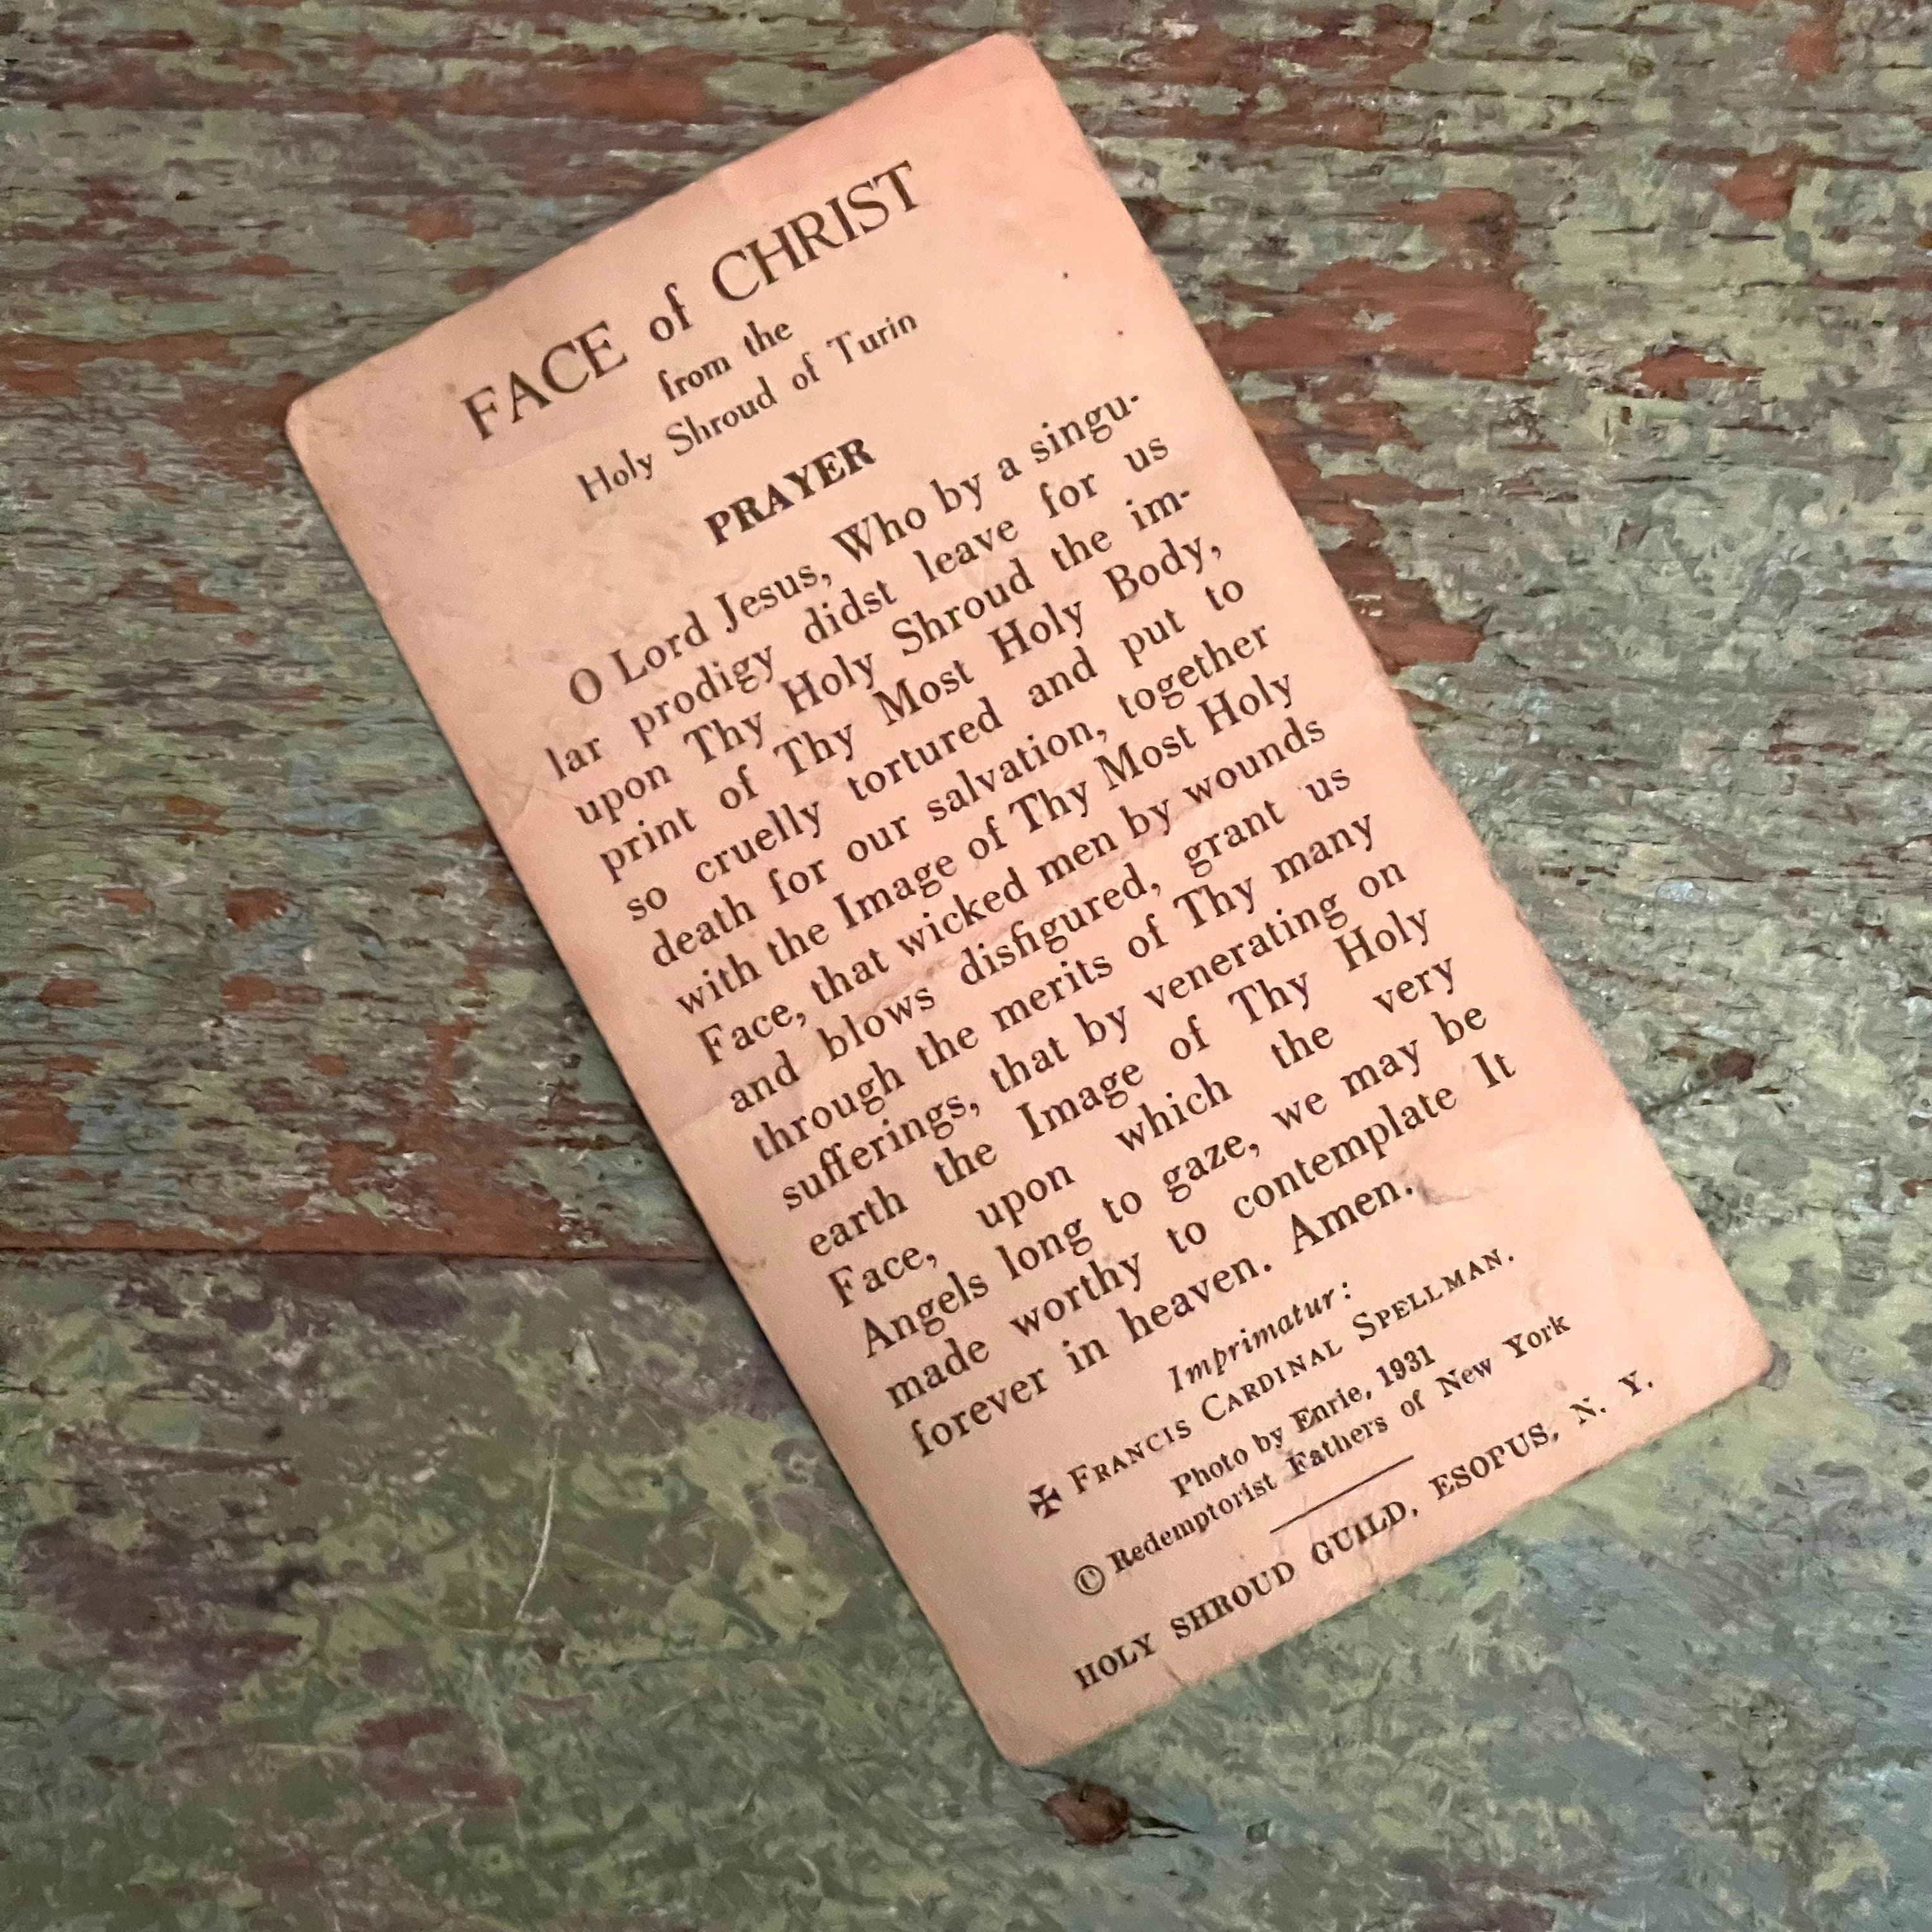 FACE of CHRIST
from the
Holy Shroud of Turin
PRAYER
O Lord Jesus, Who by a singu-
lar prodigy didst leave for us
upon Thy Holy Shroud the im-
print of Thy Most Holy Body,
so cruelly tortured and put to
death for our salvation, together
with the Image of Thy Most Holy
Face, that wicked men by wounds
and blows disfigured, grant us
through the merits of Thy many
sufferings, that by venerating on
earth the Image of Thy Holy
Face, upon which the very
Angels long to gaze, we may be
made worthy to contemplate It
forever in heaven. Amen.
Imprimatur:
✠ FRANCIS CARDINAL SPELLMAN.
Photo by Enrie, 1931
© Redemptorist Fathers of New York
HOLY SHROUD GUILD, ESOPUS, N. Y.